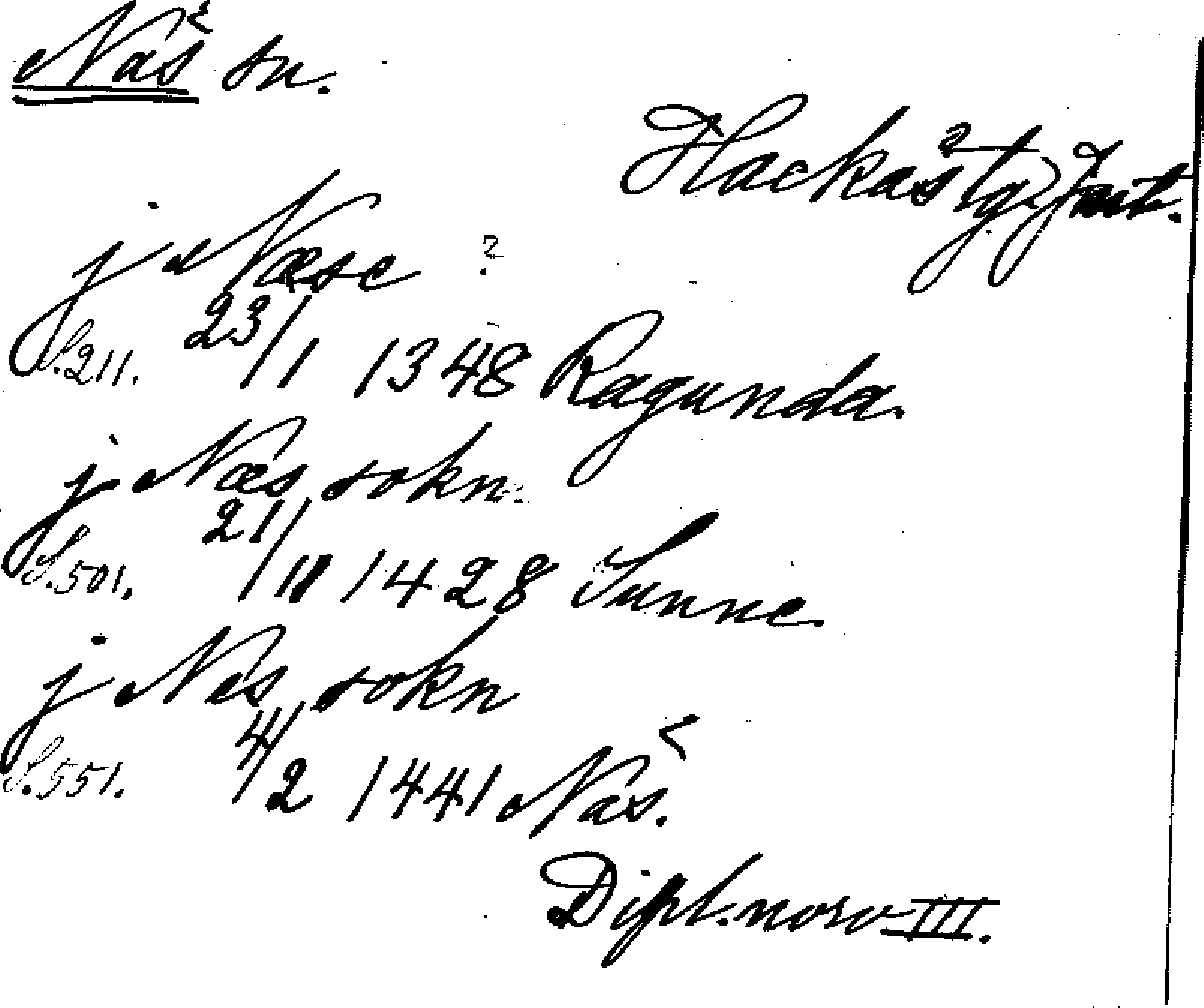 Näs sn.
Hackås tg. Jmt.
j Næse ?
S. 211. 23/1 1348 Ragunda.
j Næs sokn.
S. 501. 21/11 1428 Sunne.
j Nes sokn
S. 551. 4/2 1441 Näs.
Dipl. norv III.